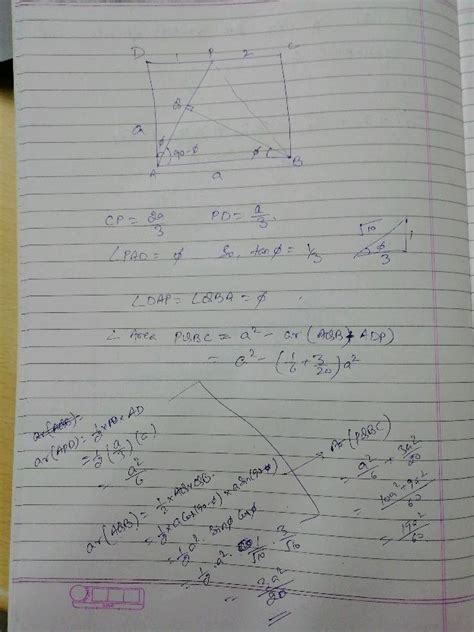 D 1 P 2 C
Q
a φ 90-φ φ
A a B
CP = 2a/3 PD = a/3.
∠PAD = φ So, tanφ = 1/3
√10 1 φ 3
∠DAP = ∠QBA = φ
∴ Area PQBC = a² - ar(AQB + ADP)
= a² - (1/6 + 3/20)a²
ar(AQB) =
ar(APD) = 1/2 × PD × AD
= 1/2 (a/3)(a)
= a²/6
ar(AQB) = 1/2 × AQ × QB
= 1/2 × a cos(90-φ) × a sin(90-φ)
= 1/2 a² sinφ cosφ
= 1/2 a² · 1/√10 · 3/√10
= 3a²/20
Ar(PQBC)
= a²/6 + 3a²/20
= 10a² + 9a²/60
= 19a²/60